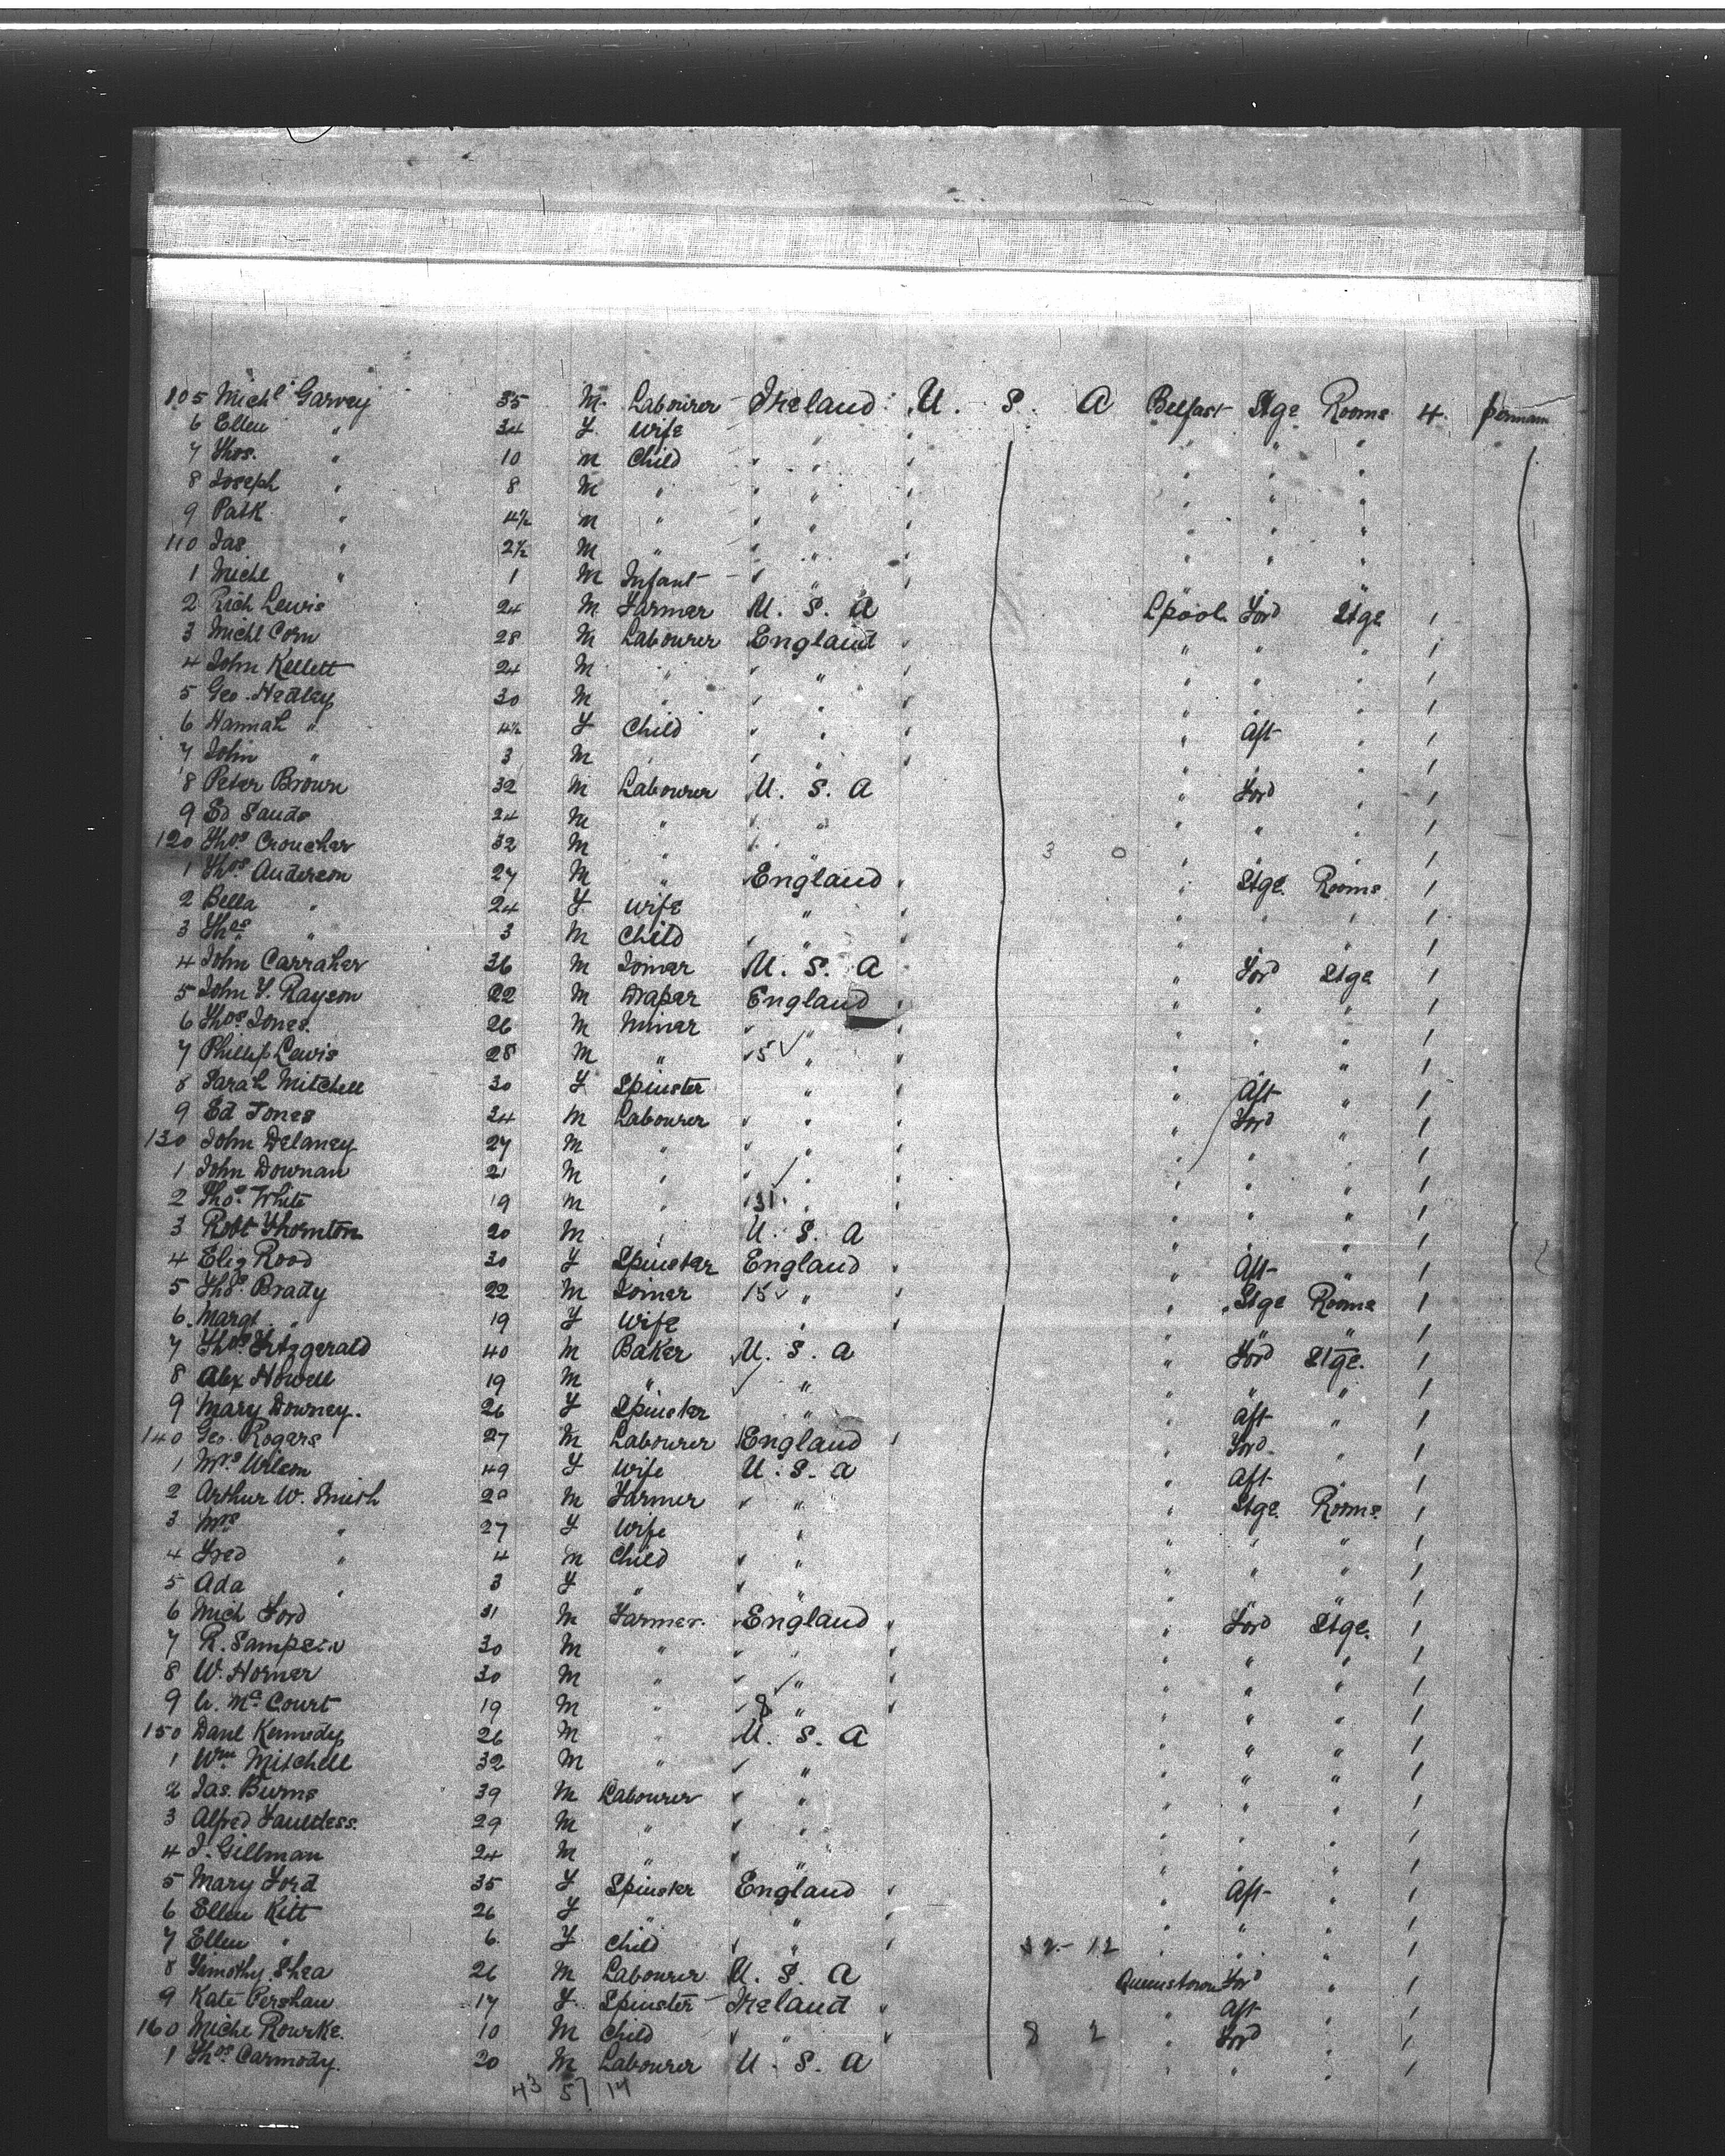 105 Michl Garvey 35 M. Labourer Ireland U. S. A Belfast Stge Rooms 4. perman
6 Ellen " 34 F. Wife " " " " "
7 Thos. " 10 M Child " " " " " "
8 Joseph " 8 M " " " " " " "
9 Patk " 4½ M " " " " " " "
110 Jas " 2½ M " " " " " " "
1 Michl " 1 M Infant " " " " " "
2 Rich Lewis 24 M Farmer U. S. A L'pool Ford Stge 1
3 Michl Corn 28 M Labourer England " " " " 1
4 John Kellett 24 M " " " " " " 1
5 Geo. Hedley 30 M " " " " " " 1
6 Hannah " 4½ F Child " " " Aft " 1
7 John " 3 M " " " " " " 1
8 Peter Brown 32 M Labourer U. S. A " Ford " 1
9 Ed Sands 24 M " " " " " 1
120 Thos. Croucher 32 M " " " 3 0 " " " 1
1 Thos. Anderson 27 M " England " " Stge Rooms 1
2 Bella " 24 F Wife " " " " " 1
3 Thos " 3 M Child " " " " " 1
4 John Carraher 36 M Joiner U. S. A " Ford Stge 1
5 John F. Rayson 22 M Draper England " " " " 1
6 Thos. Jones. 26 M Miner " " " " 1
7 Phillip Lewis 28 M " 5 " " " " " 1
8 Sarah Mitchell 30 F Spinster " " " Aft " 1
9 Ed Jones 24 M Labourer " " " " Ford 1
130 John Delaney 27 M " " " " " " " 1
1 John Downan 21 M " " " " " " " 1
2 Thos. White 19 M " 31 " " " " " 1
3 Robt Thornton 20 M " U. S. A " " " 1
4 Eliz Rood 30 F Spinster England " " Aft " 1
5 Thos. Brady 22 M Joiner 15 " " " Stge Rooms 1
6. Margt. " 19 F Wife " " " " " 1
7 Thos. Fitzgerald 40 M Baker U. S. A " Ford Stge. 1
8 Alex Howell 19 M " " " " " 1
9 Mary Downey. 26 F Spinster " " Aft " 1
140 Geo. Rogers 27 M Labourer England " " Ford " 1
1 Mrs. Wilson 49 F Wife U. S. A " Aft " 1
2 Arthur W. Smith M Farmer " " " Stge. Rooms. 1
3 Mrs " 27 F Wife " " " " 1
4 Fred " 4 M Child " " " " " 1
5 Ada " 3 F " " " " " " 1
6 Mich Ford 31 M Farmer. England " " Ford Stge. 1
7 R. Sampson 30 M " " " " " " " 1
8 W. Horner 30 M " " " " " " 1
9 Mc. Court 19 M " 8 " " " " " 1
150 Danl Kennedy 26 M " U. S. A " " " 1
1 Wm. Mitchell 32 M " " " " " " 1
2 Jas. Burns 39 M Labourer " " " " " 1
3 Alfred Faultless. 29 M " " " " " " 1
4 J. Gillman 24 M " " " " " " 1
5 Mary Ford 35 F Spinster England " " Aft " 1
6 Ellen Kitt 26 F " " " " " 1
7 Ellen " 6 F Child " " " 32 - 12 " " " 1
8 Timothy Shea 26 M Labourer U. S. A Queenstown Ford " 1
9 Kate Pershau 17 F Spinster Ireland " " Aft " 1
160 Michl Rourke. 10 M Child " " " 8 2 " Ford " 1
1 Thos. Carmody. 20 M Labourer U. S. A " " " 1
43 57 14